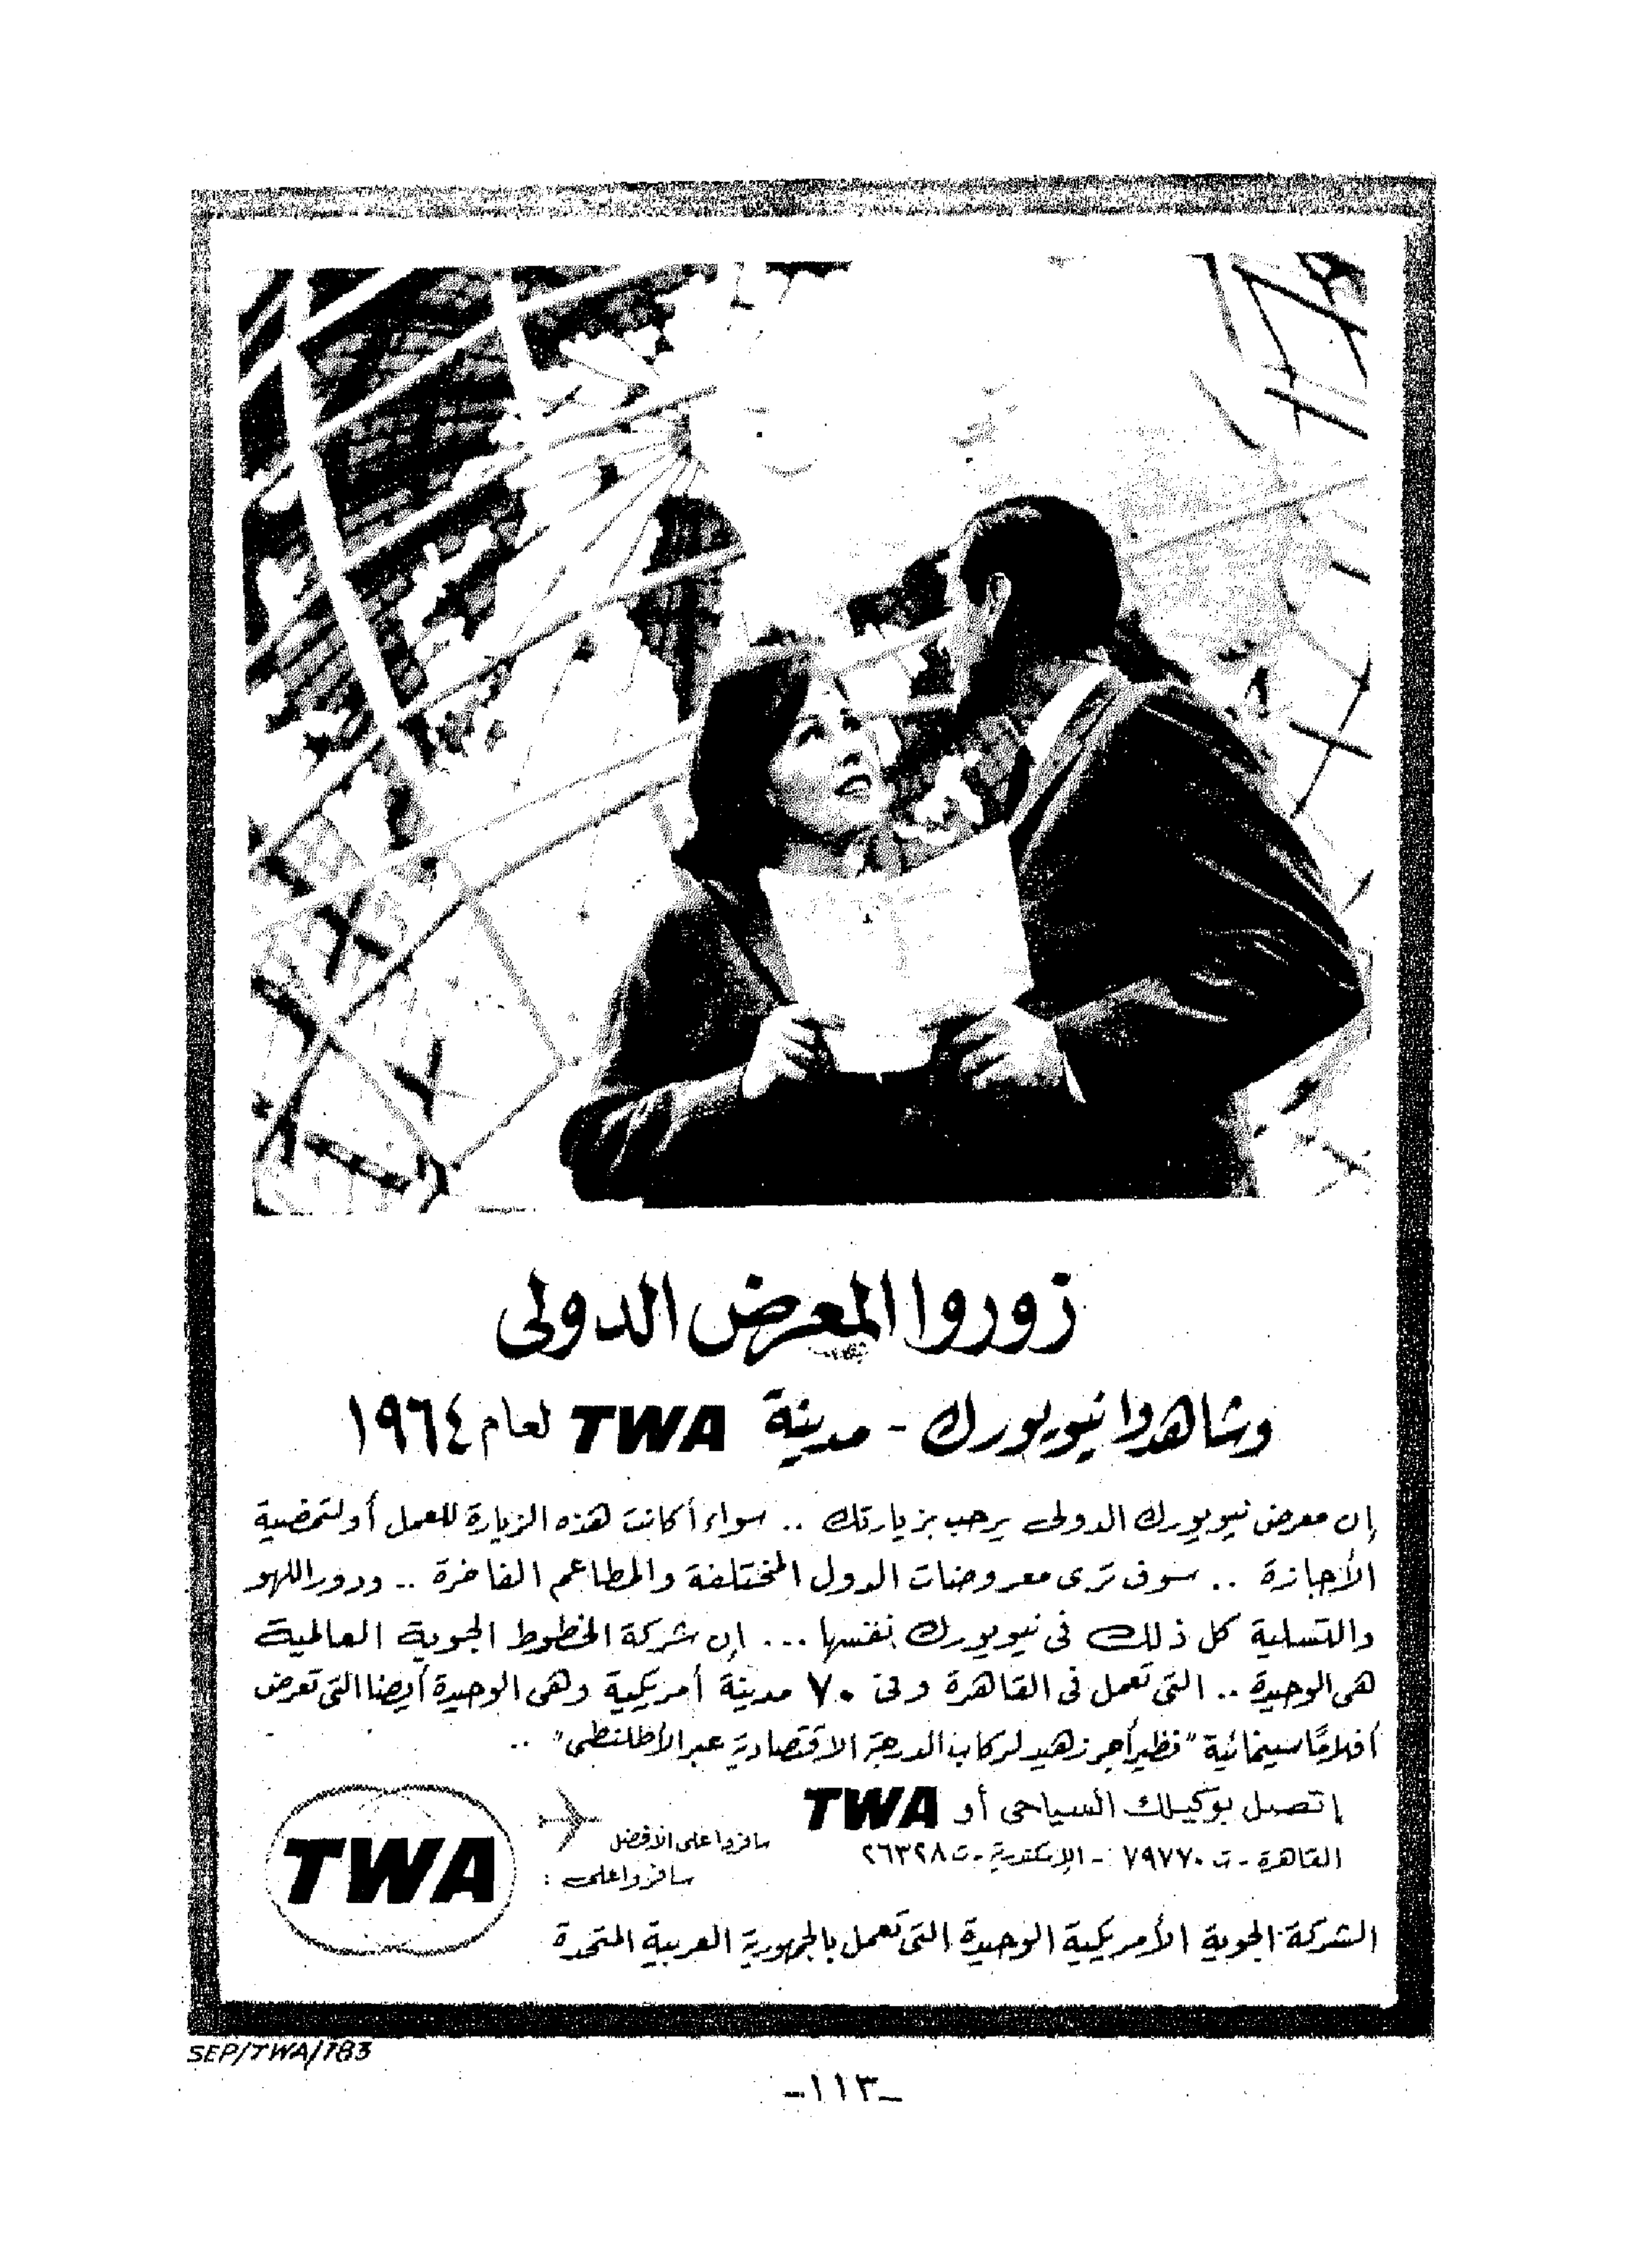 زوروا المعرض الدولى
وشاهدوا نيويورك - مدينة TWA لعام ١٩٦٤
إن معرض نيويورك الدولى يرحب بزيارتك .. سواء أكانت هذه الزيارة للعمل أو لتمضية
الأجازة .. سوف ترى معروضات الدول المختلفة والمطاعم الفاخرة .. ودور اللهو
والتسلية كل ذلك فى نيويورك نفسها ... إن شركة الخطوط الجوية العالمية
هى الوحيدة .. التى تعمل فى القاهرة وفى ٧٠ مدينة أمريكية وهى الوحيدة أيضا التى تعرض
أفلامًا سينمائية "نظير أجر زهيد لركاب الدرجة الاقتصادية عبر الأطلنطى" ..
إتصل بوكيلك السياحى أو TWA
القاهرة - ت ٧٩٧٧٠ - الإسكندرية - ت ٢٦٣٢٨
سافروا على الأفضل
سافروا على :
TWA
الشركة الجوية الأمريكية الوحيدة التى تعمل بالجمهورية العربية المتحدة
SEP/TWA/783
-١١٣-